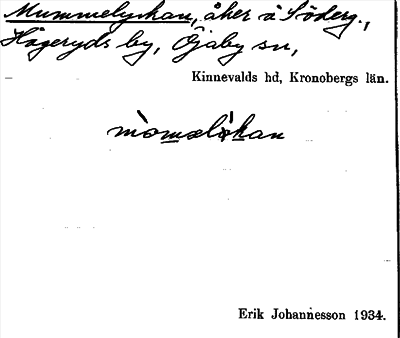 Mummelyckan, åker å Söderg.,
Hägeryds by, Öjaby sn,
Kinnevalds hd, Kronobergs län.
Erik Johannesson 1934.